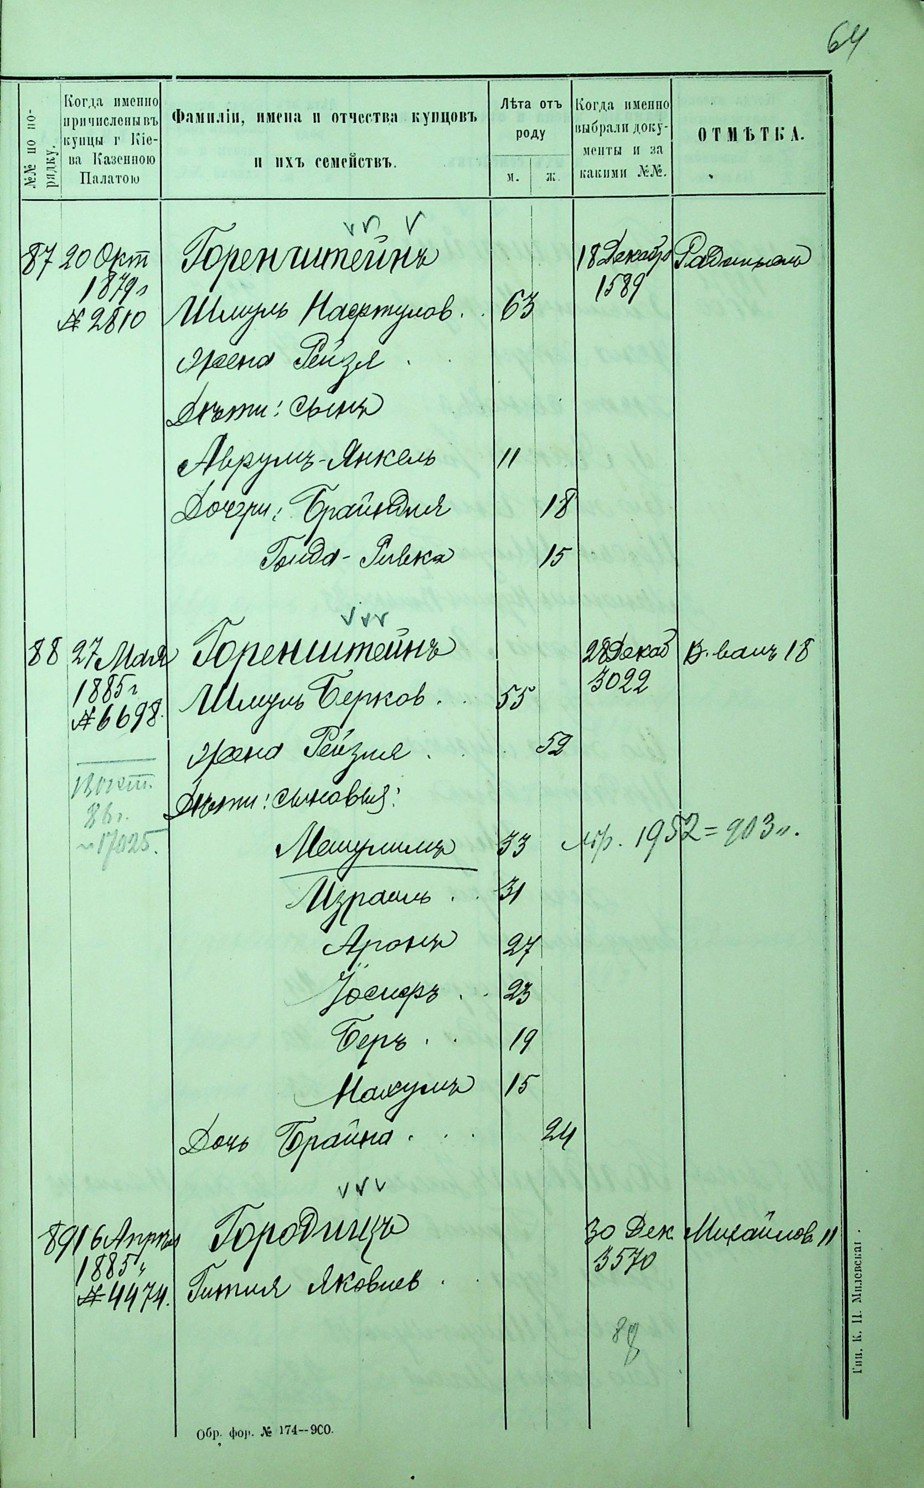 64
№№ по по-
рядку.
Когда именно
причислены въ
купцы г Кіе-
ва Казенною
Палатою
Фамиліи, имена и отчества купцовъ
и ихъ семействъ.
Лѣта отъ
роду
м. ж.
Когда именно
выбрали доку-
менты и за
какими №№.
ОТМѢТКА.
87 20 Окт Горенштейнъ 18 Декабр
1879 г 1589
№ 2810 Шмуль Нафтулов. 63
жена Рейзя
Дѣти: сынъ
Аврумъ-Янкель 11
Дочери: Брайндля 18
Голда-Ривка 15
88 27 Мая Горенштейнъ 28 Декаб 18
1885 г 3022
№ 6698. Шмуль Берков. 55
жена Рейзля 52
13 окт.
86 г.
17025.
Дѣти: сыновья:
Мешулимъ 33 1952 = 903 г.
Израиль 31
Аронъ 27
Іосифъ 23
Беръ 19
Нахумъ 15
Дочь Брайна 24
89 16 Апрѣля Городищъ 30 Дек Михайлов 11
1885 г 3570
№ 4474. Гитля Яковлев.
Обр. фор. № 174—900.
Тип. К. Н. Милевскаг.